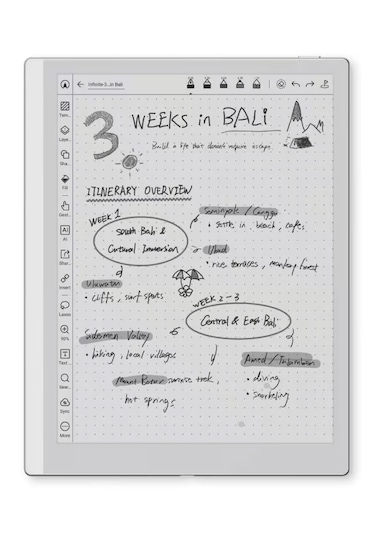 Infinite-3...in Bali
3 WEEKS in BALI
Build a life that doesn't require escape.
ITINERARY OVERVIEW
WEEK 1
South Bali &
Cultural Immersion
Seminyak / Canggu
• settle in, beach, cafes
Ubud
• rice terraces, monkey forest
Uluwatu
• cliffs, surf spots
WEEK 2-3
Central & East Bali
Sidemen Valley
• hiking, local villages
Mount Batur sunrise trek,
hot springs
Amed /
• diving
• snorkeling
Tem...
Laye...
Sha...
Fill
Gest...
AI
AI
Shar...
Insert
Lasso
90%
Text...
Sear...
Sync
More